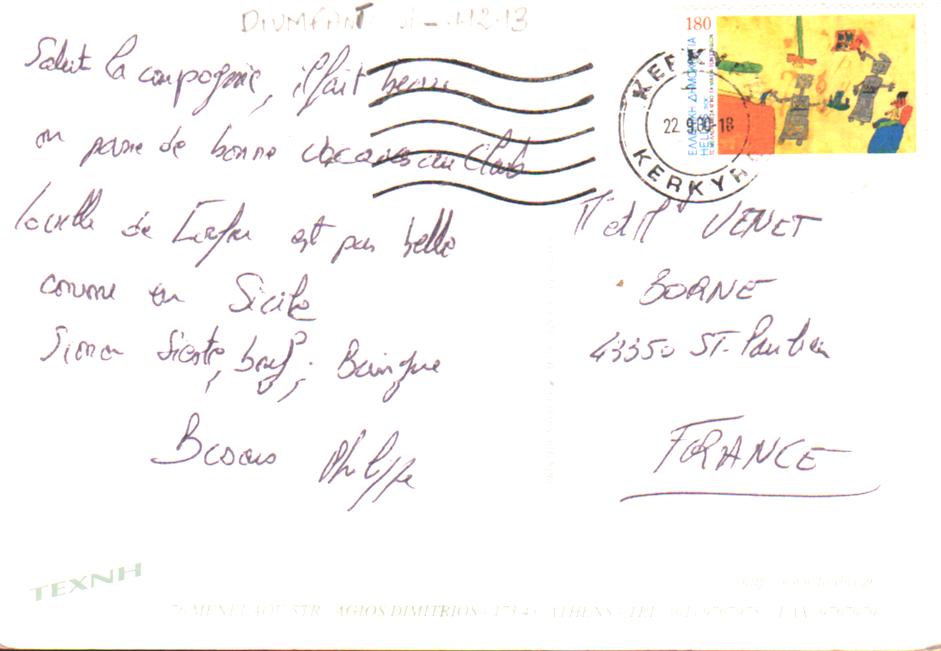 DIUMFANT 1-12-13
Salut la compagnie, il fait beau
on passe de bonne vacances au Club
la ville de Corfou est pas belle
comme en Sicile
Sinon Sieste, bouf,
Bisous Philippe
180
ΕΛΛΗΝΙΚΗ ΔΗΜΟΚΡΑΤΙΑ
HELLAS
KERKYRA
22.9.00-18
M et M VENET
BORNE
43350 ST. Paulien
FRANCE
TEXNH
76 MENELAOU STR. AGIOS DIMITRIOS - 173 43 ATHENS - TEL.